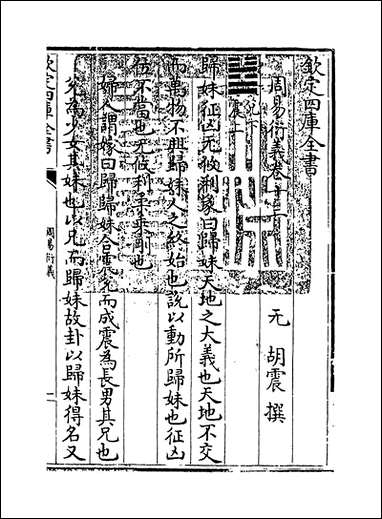 欽定四庫全書
周易衍義卷十二
元 胡震 撰
兌下
震上
歸妹征凶无攸利彖曰歸妹天地之大義也天地不交
而萬物不興歸妹人之終始也說以動所歸妹也征凶
位不當也无攸利柔乘剛也
婦人謂嫁曰歸歸妹合震兌而成震為長男其兄也
兌為少女其妹也以兄而歸妹故卦以歸妹得名又
欽定四庫全書
周易衍義
一